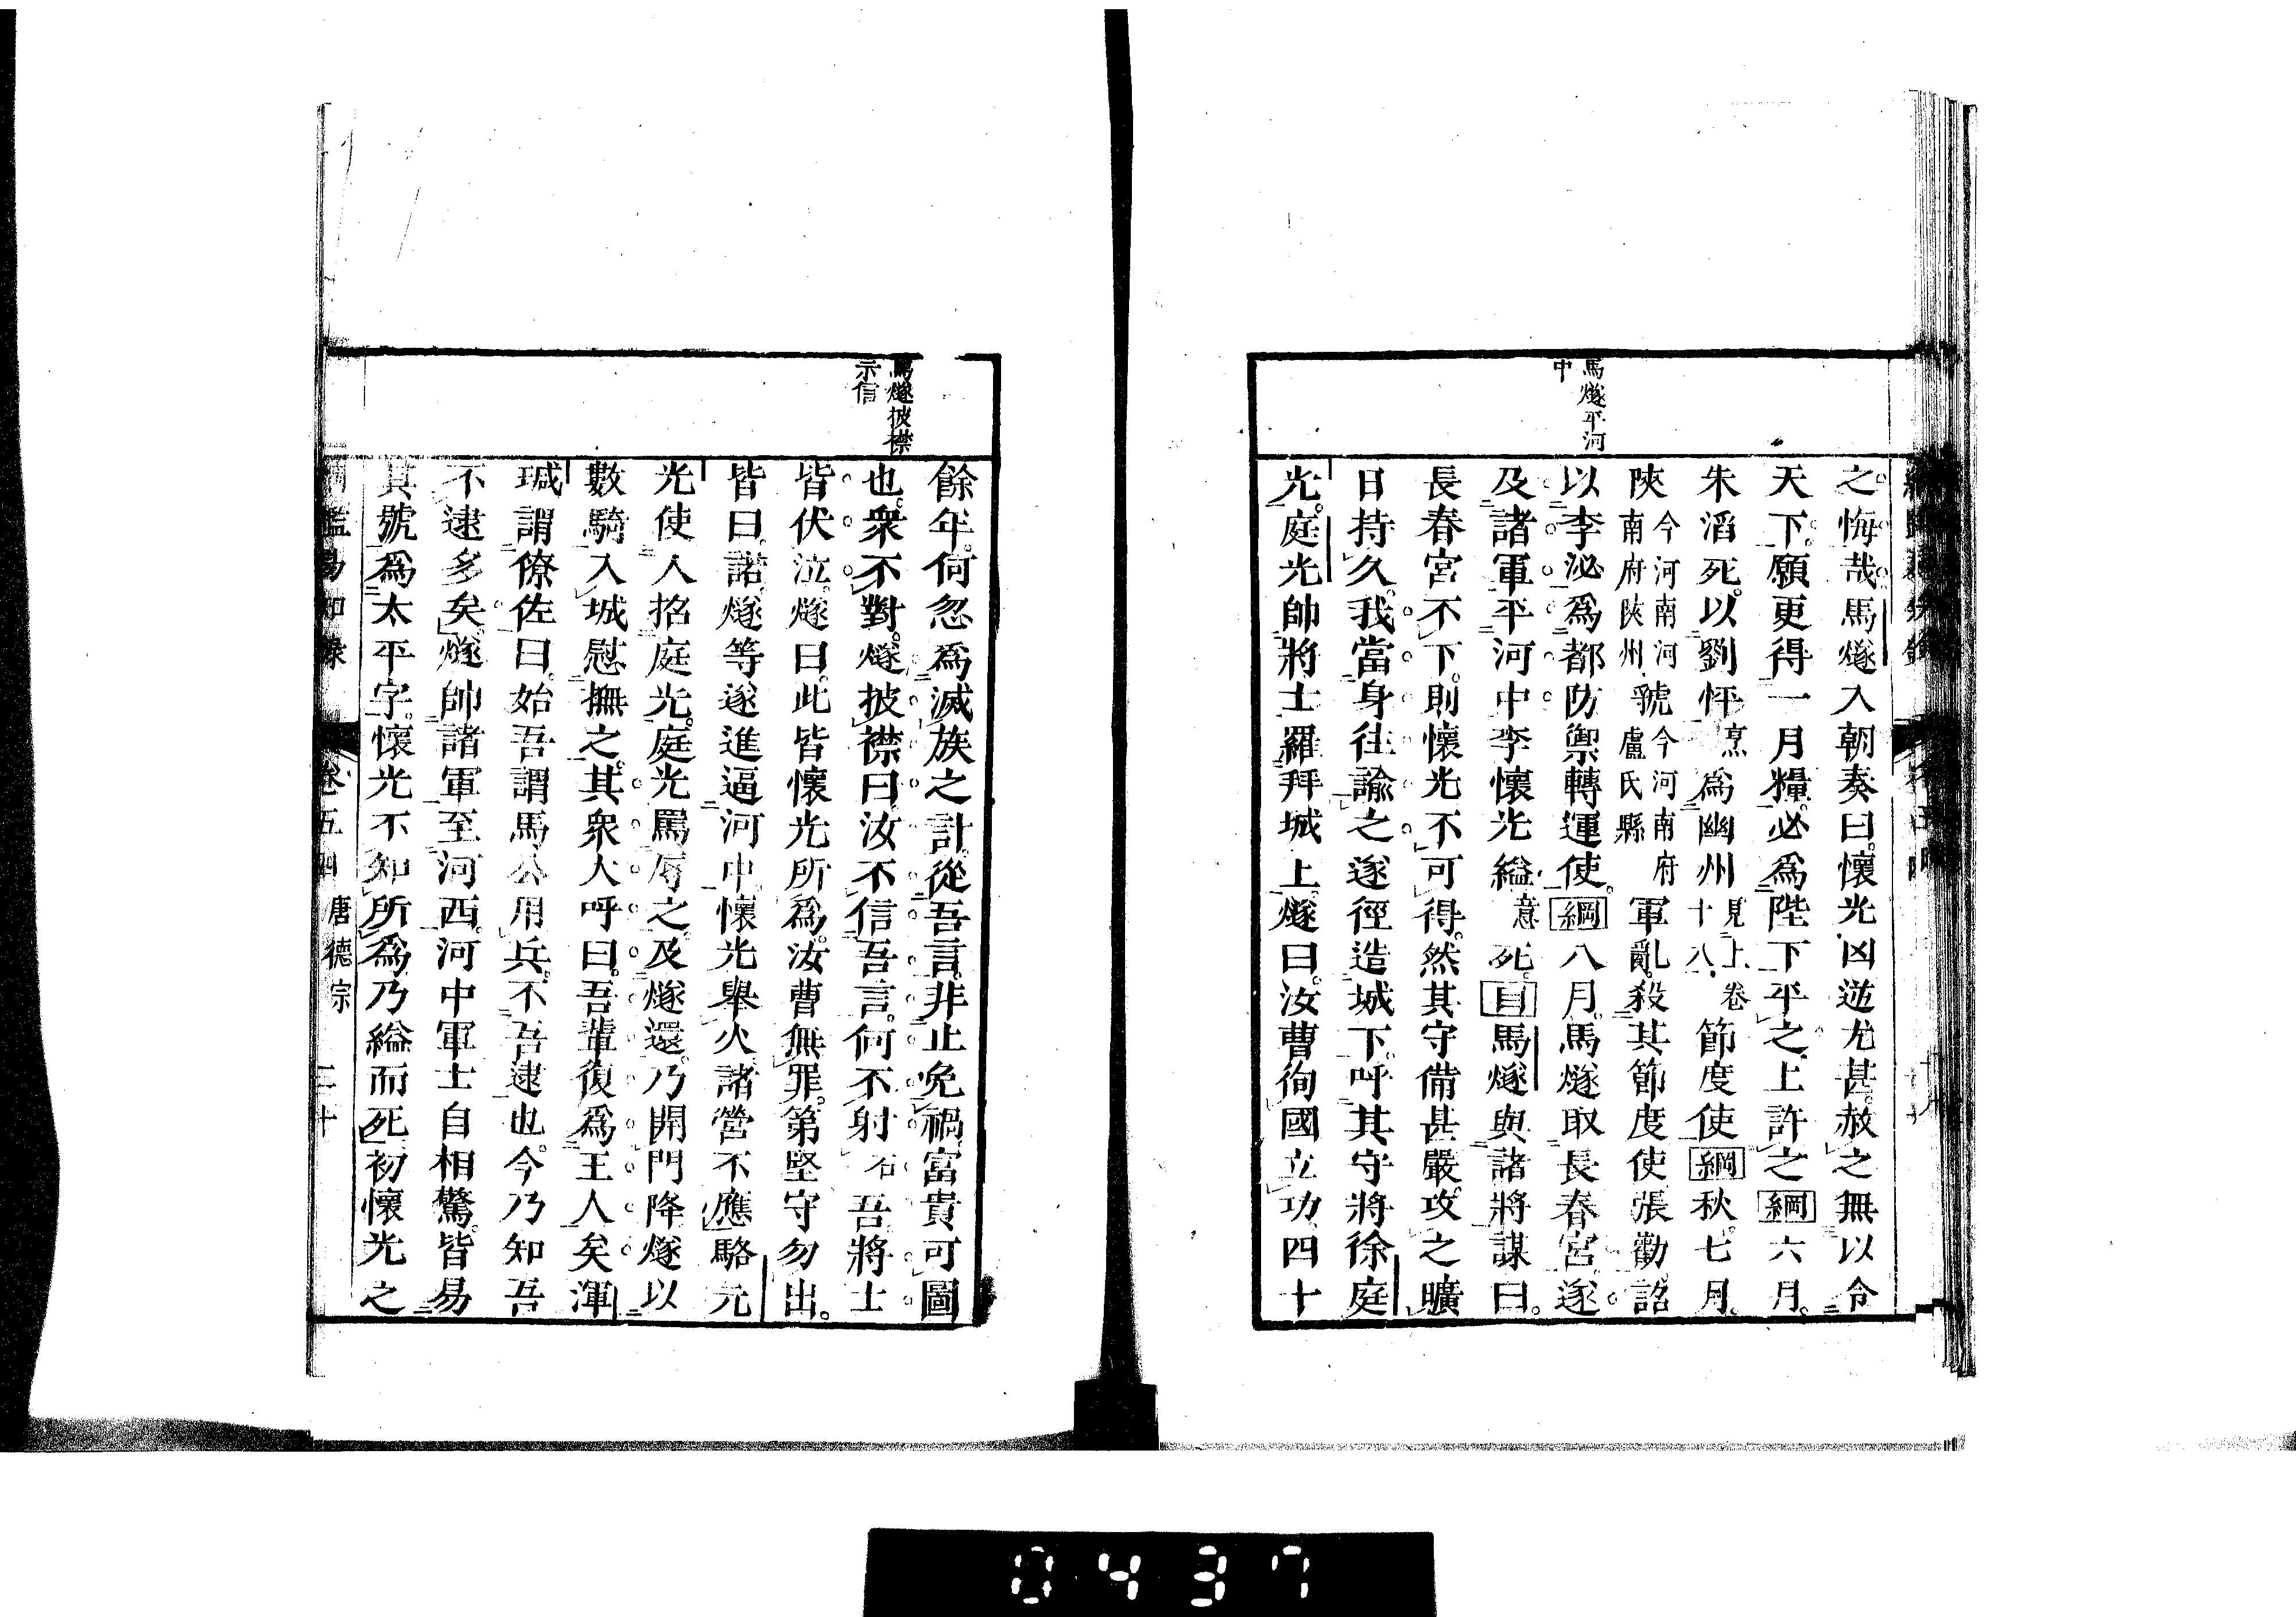 馬燧平河
中
之悔哉馬燧入朝奏曰懷光凶逆尤甚赦之無以令
天下願更得一月糧必爲陛下平之上許之綱六月
朱滔死以劉怦烹爲幽州見上卷十八節度使綱秋七月
陝今河南河南府陝州虢今河南府盧氏縣軍亂殺其節度使張勸詔
以李泌爲都防禦轉運使綱八月馬燧取長春宮遂
及諸軍平河中李懷光縊意死目馬燧與諸將謀曰
長春宮不下則懷光不可得然其守備甚嚴攻之曠
日持久我當身往諭之遂徑造城下呼其守將徐庭
光庭光帥將士羅拜城上燧曰汝曹徇國立功四十
馬燧披襟
示信
餘年何忽爲滅族之計從吾言非止免禍富貴可圖
也衆不對燧披襟曰汝不信吾言何不射石吾將士
皆伏泣燧曰此皆懷光所爲汝曹無罪第堅守勿出
皆曰諾燧等遂進逼河中懷光舉火諸營不應駱元
光使人招庭光庭光罵辱之及燧還乃開門降燧以
數騎入城慰撫之其衆大呼曰吾輩復爲王人矣渾
瑊謂僚佐曰始吾謂馬公用兵不吾逮也今乃知吾
不逮多矣燧帥諸軍至河西河中軍士自相驚皆易
其號爲太平字懷光不知所爲乃縊而死初懷光之
綱鑑易知錄 卷五四 唐德宗 二十
0437